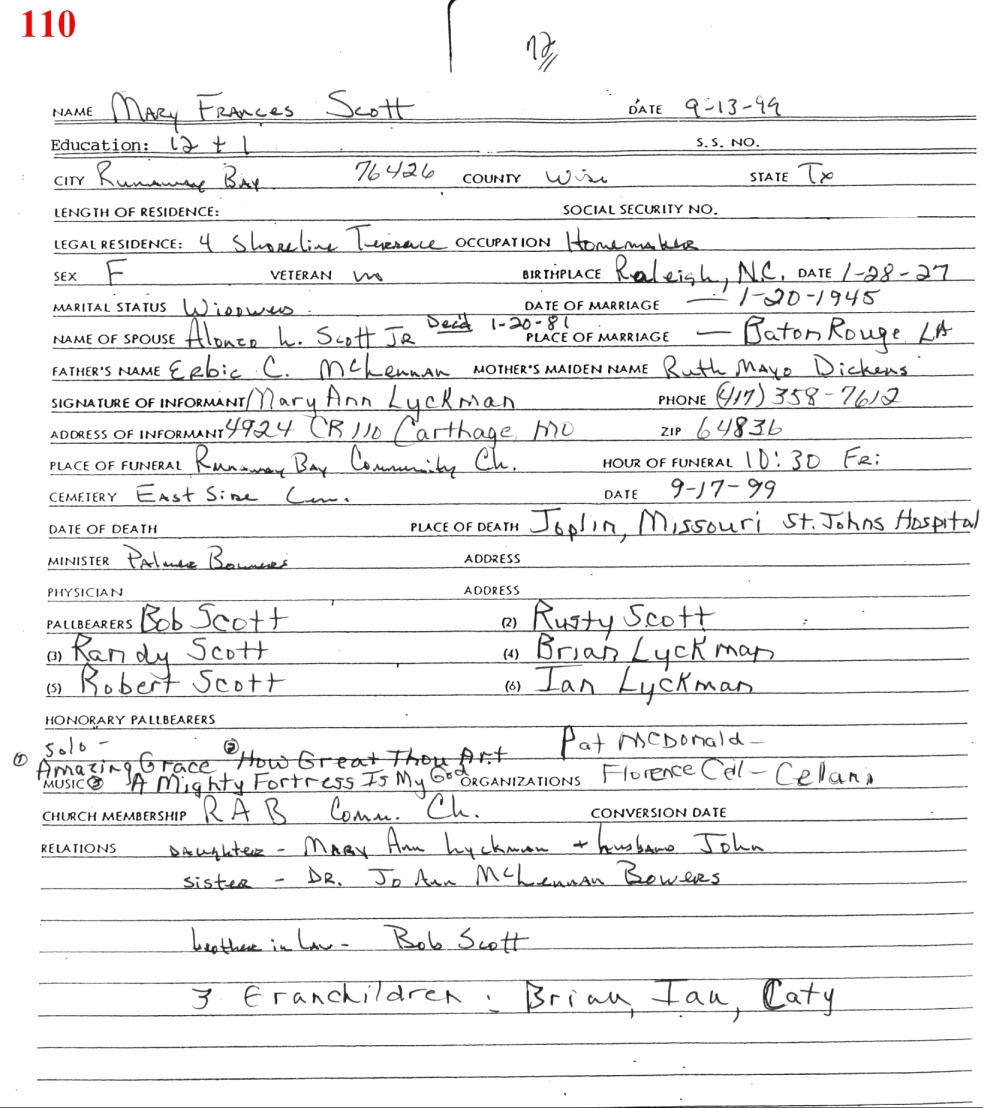 110
72
NAME Mary Frances Scott DATE 9-13-99
Education: 12 + 1 S.S. NO.
CITY Runaway Bay 76426 COUNTY Wise STATE Tx
LENGTH OF RESIDENCE: SOCIAL SECURITY NO.
LEGAL RESIDENCE: 4 Shoreline Terrace OCCUPATION Homemaker
SEX F VETERAN no BIRTHPLACE Raleigh, N.C. DATE 1-28-27
MARITAL STATUS Widowed DATE OF MARRIAGE — 1-20-1945
NAME OF SPOUSE Alonzo L. Scott JR Dec'd 1-20-81 PLACE OF MARRIAGE — Baton Rouge LA
FATHER'S NAME Erbie C. McLennan MOTHER'S MAIDEN NAME Ruth Mayo Dickens
SIGNATURE OF INFORMANT Mary Ann Lyckman PHONE (417) 358-7612
ADDRESS OF INFORMANT 4924 CR 110 Carthage, MO ZIP 64836
PLACE OF FUNERAL Runaway Bay Community Ch. HOUR OF FUNERAL 10:30 Fri
CEMETERY East Side Cem. DATE 9-17-99
DATE OF DEATH PLACE OF DEATH Joplin, Missouri St. Johns Hospital
MINISTER Palmer Bowers ADDRESS
PHYSICIAN ADDRESS
PALLBEARERS Bob Scott (2) Rusty Scott
(3) Randy Scott (4) Brian Lyckman
(5) Robert Scott (6) Ian Lyckman
HONORARY PALLBEARERS
Solo - Pat McDonald -
① Amazing Grace ② How Great Thou Art
MUSIC ② A Mighty Fortress Is My God ORGANIZATIONS Florence Cell - Cellani
CHURCH MEMBERSHIP R A B Comm. Ch. CONVERSION DATE
RELATIONS Daughter - Mary Ann Lyckman + husband John
Sister - DR. Jo Ann McLennan Bowers
brother in Law - Bob Scott
3 Granchildren : Brian, Ian, Caty